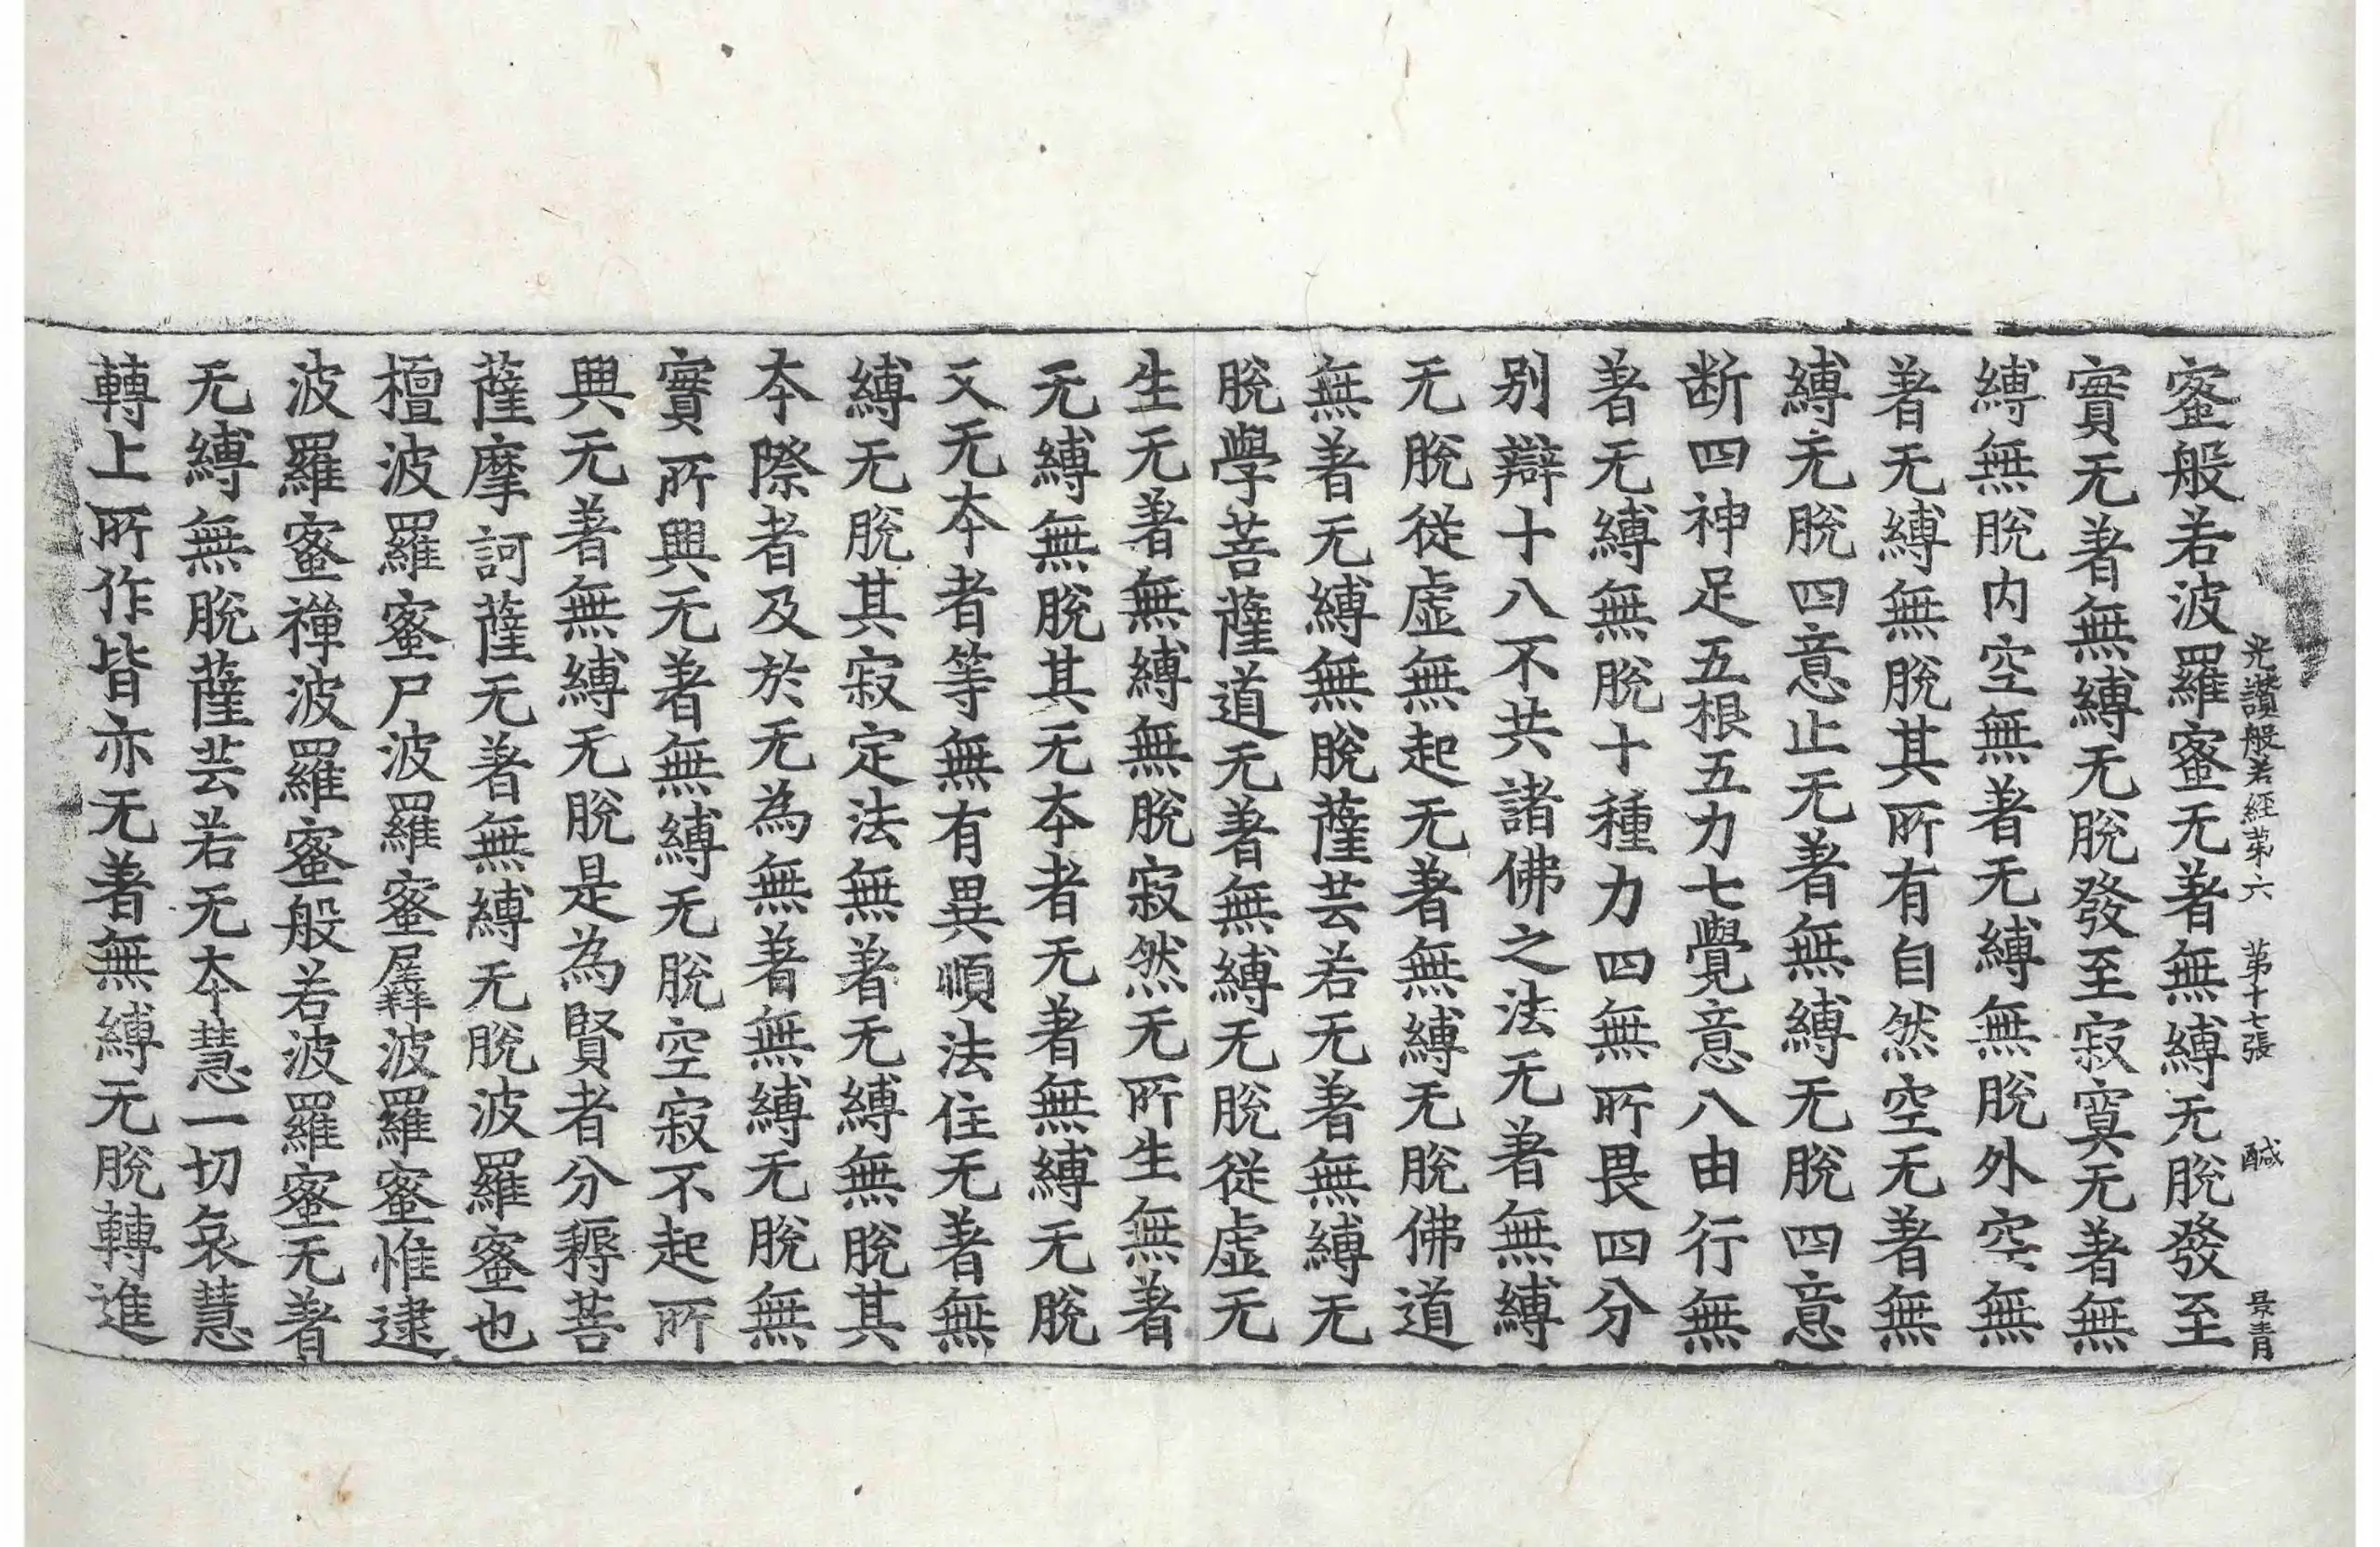 光讚般若經第六 第十七張 醎
蜜般若波羅蜜无著無縛无脫發至
實无著無縛无脫發至寂寞无著無
縛無脫内空無著无縛無脫外空無
著无縛無脫其所有自然空无著無
縛无脫四意止无著無縛无脫四意
断四神足五根五力七覺意八由行無
著无縛無脫十種力四無所畏四分
別辯十八不共諸佛之法无著無縛
无脫從虛無起无著無縛无脫佛道
無著无縛無脫薩芸若无著無縛无
脫學菩薩道无著無縛无脫從虛无
生无著無縛無脫寂然无所生無著
无縛無脫其无本者无著無縛无脫
又无本者等無有異順法住无著無
縛无脫其寂定法無著无縛無脫其
本際者及於无為無著無縛无脫無
實所興无著無縛无脫空寂不起所
興无著無縛无脫是為賢者分耨菩
薩摩訶薩无著無縛无脫波羅蜜也
檀波羅蜜尸波羅蜜羼波羅蜜惟逮
波羅蜜禪波羅蜜般若波羅蜜无著
无縛無脫薩芸若无本慧一切哀慧
轉上所作皆亦无著無縛无脫轉進